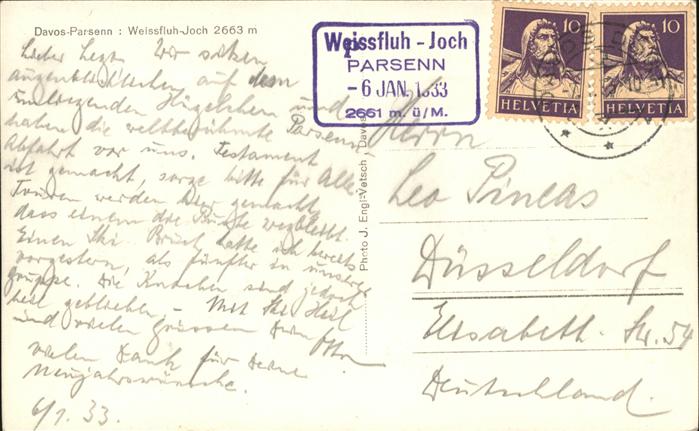 Davos-Parsenn : Weissfluh-Joch 2663 m
Lieber Wir sitzen
augenblicklich auf dem
umliegenden Hügelchen und
haben die weltberühmte Parsenn
Abfahrt vor uns. Testament
ist gemacht, sorge bitte für Alle.
Touren werden hier gemacht,
dass einem die Puste wegbleibt.
Einen Ski-Bruch hatte ich bereits
vorgestern, als fünfter in unserer
Gruppe. Die Knochen sind jedoch
heil geblieben – Mit Ski Heil
und vielen Grüssen Dein Otto
Vielen Dank für Deine
Neujahrswünsche.
6/1. 33.
Photo J. Engi-Vetsch, Davos
Weissfluh - Joch
PARSENN
- 6 JAN. 1933
2661 m. ü/M.
10
HELVETIA
10
HELVETIA
Herrn
Leo Pincas
Düsseldorf
Elisabeth-Str. 54
Deutschland.